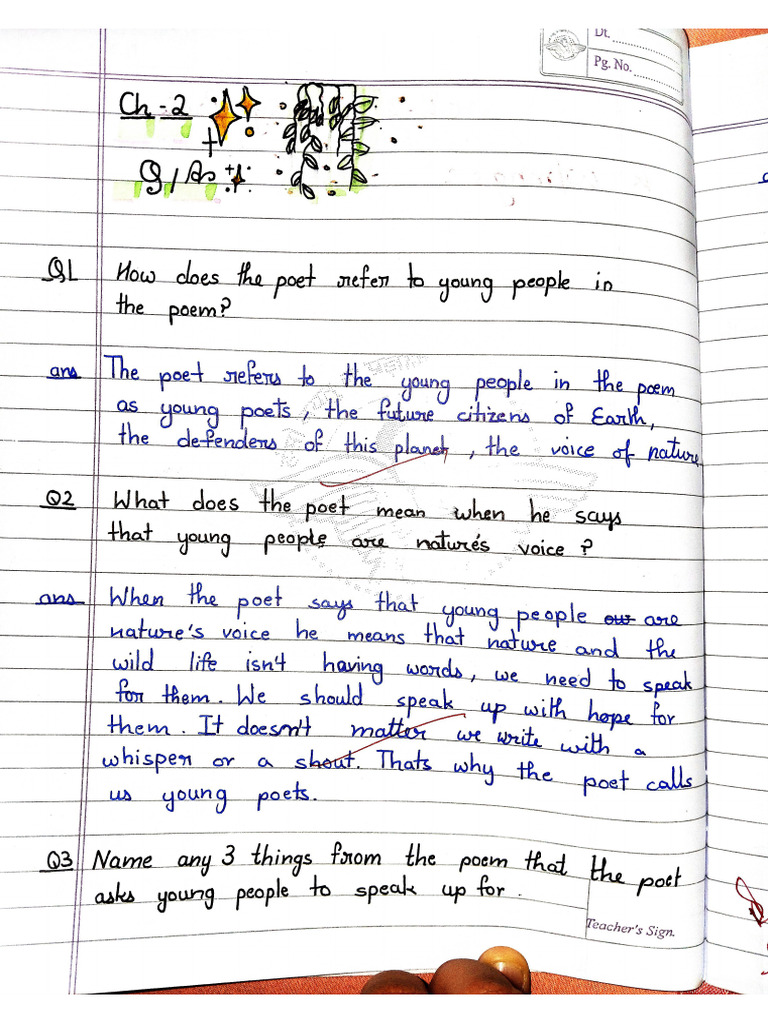 Dt.
Pg. No.
Ch-2
Q/As
Q1 How does the poet refer to young people in
the poem?
ans The poet refers to the young people in the poem
as young poets, the future citizens of Earth,
the defenders of this planet, the voice of nature
Q2 What does the poet mean when he says
that young people are nature's voice?
ans When the poet says that young people our are
nature's voice he means that nature and the
wild life isn't having words, we need to speak
for them. We should speak up with hope for
them. It doesn't matter we write with a
whisper or a shout. Thats why the poet calls
us young poets.
Q3 Name any 3 things from the poem that the poet
asks young people to speak up for.
Teacher's Sign.